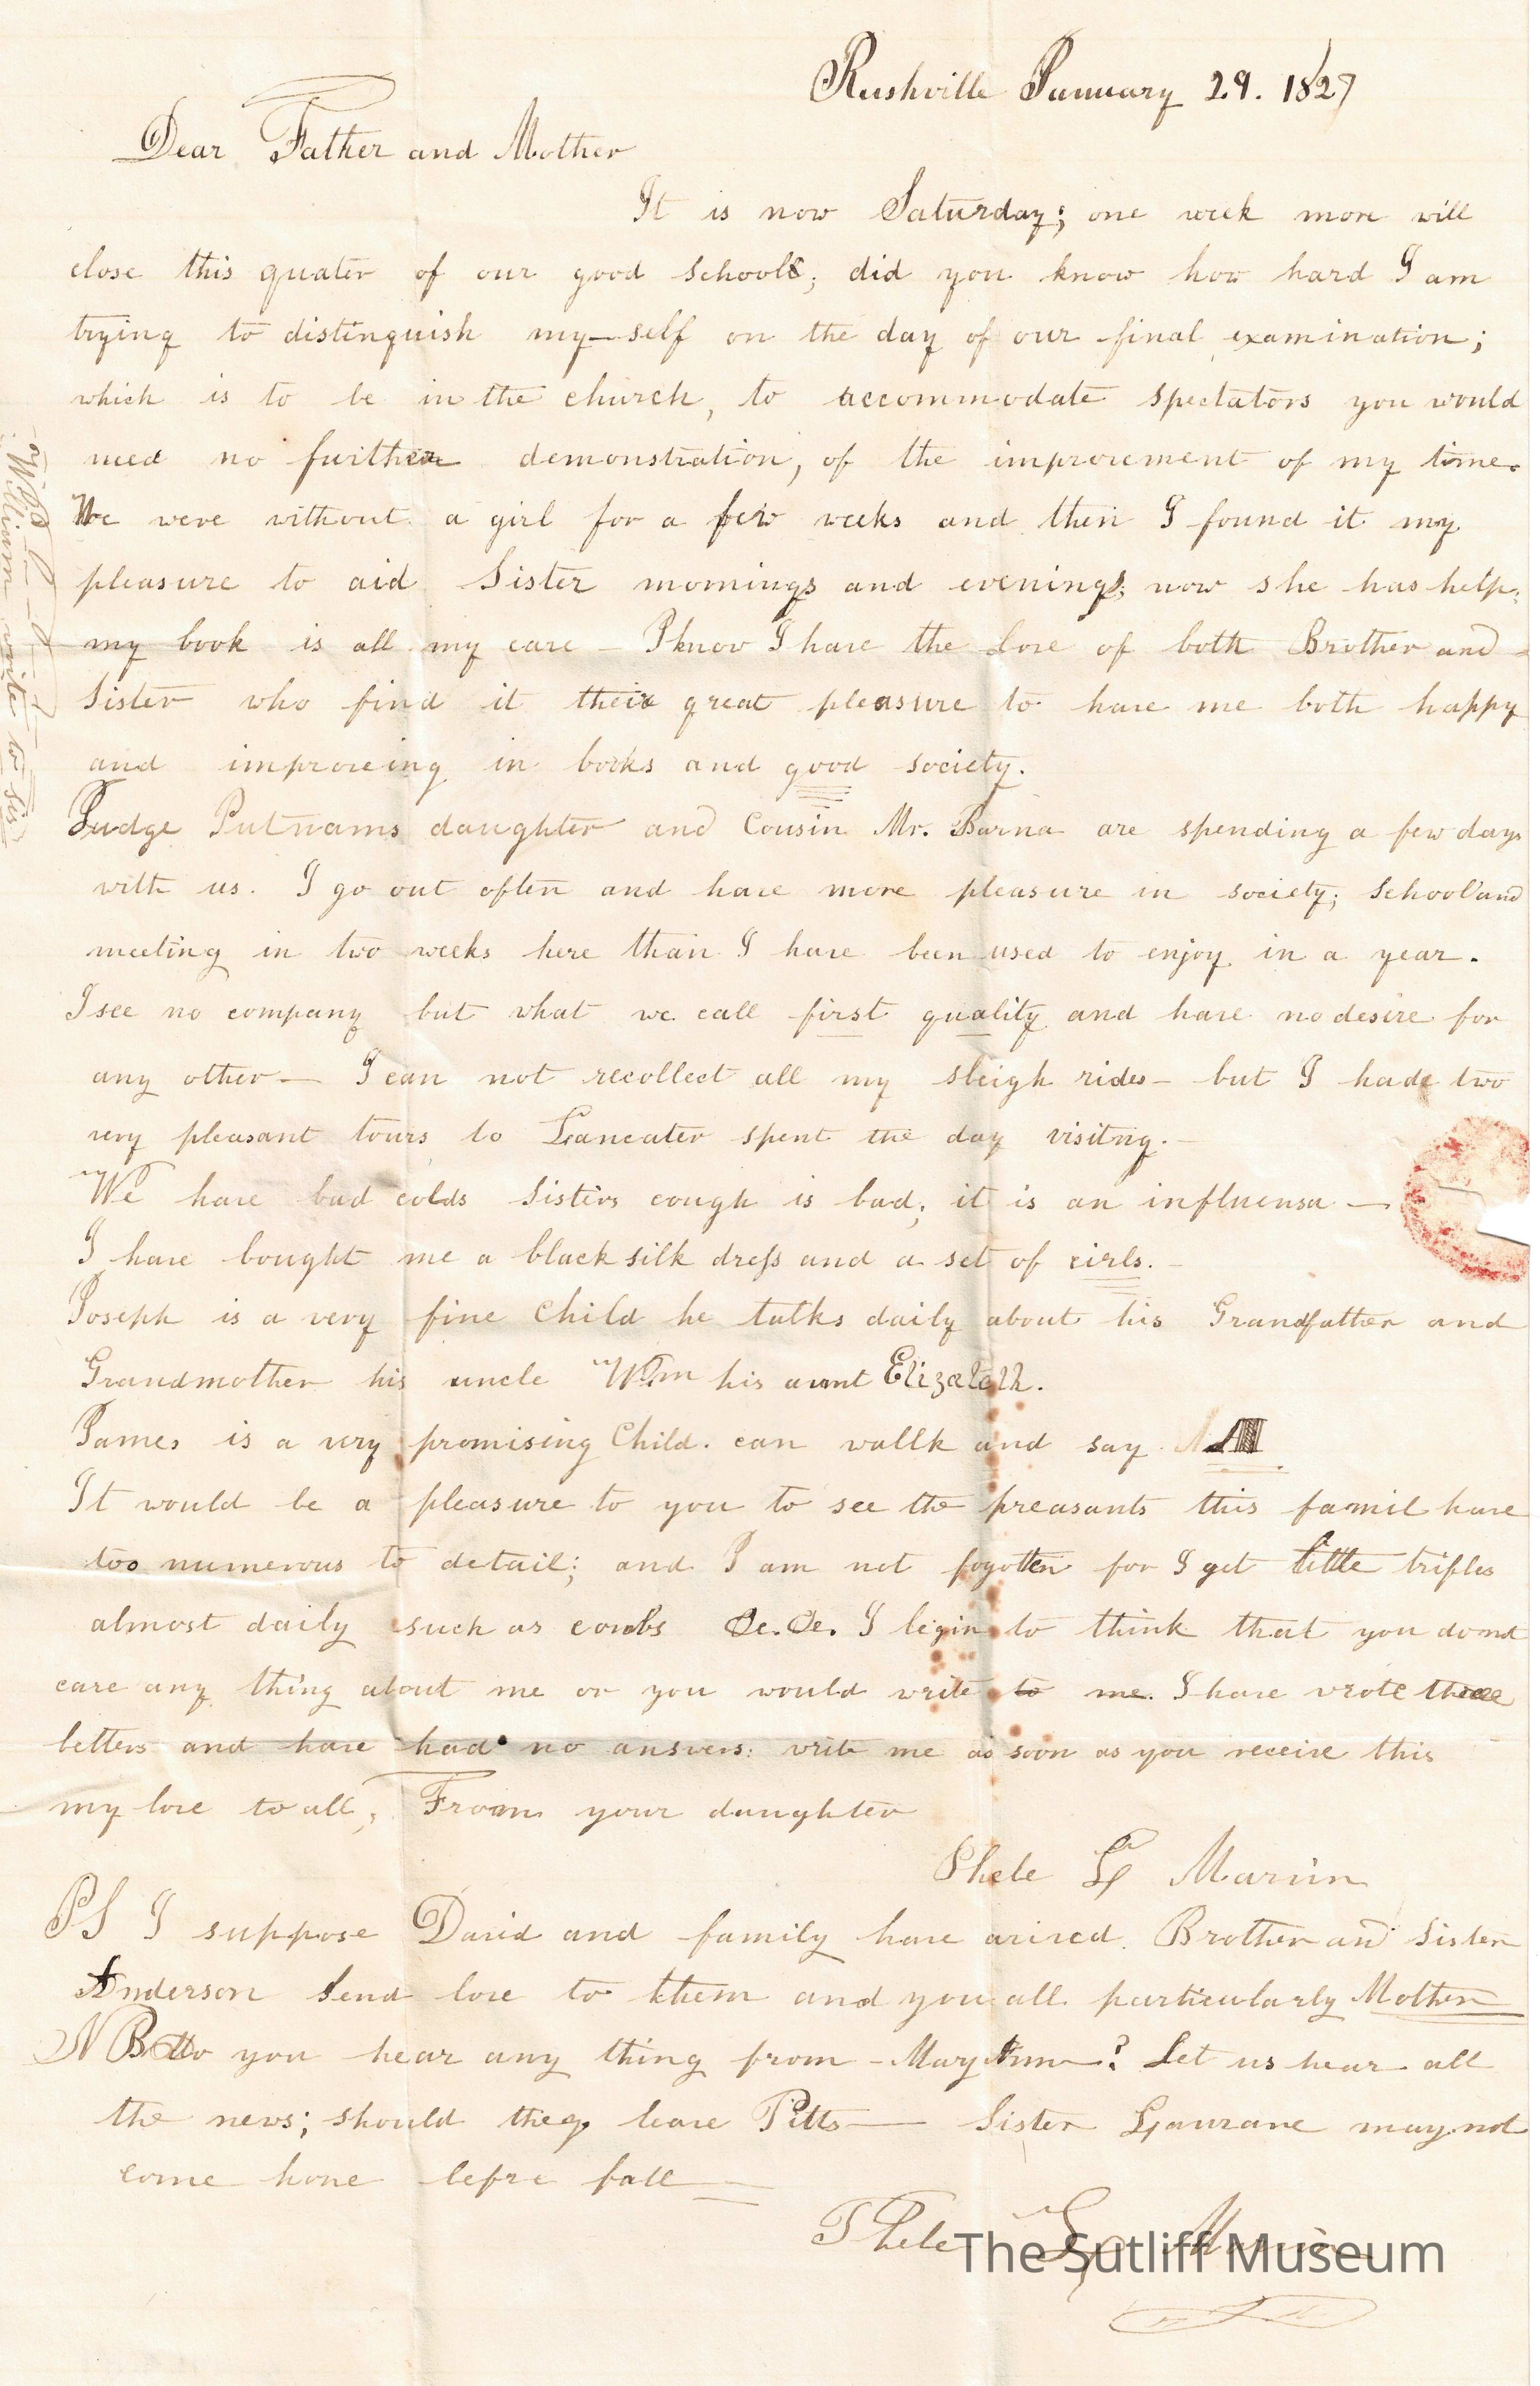 Rushville January 29. 1827
Dear Father and Mother
It is now Saturday; one week more will
close this quater of our good school; did you know how hard I am
trying to distinguish my-self on the day of our final examination;
which is to be in the church, to accommodate spectators you would
need no further demonstration, of the improvement of my time.
We were without a girl for a few weeks and then I found it my
pleasure to aid Sister mornings and evenings; now she has help;
my book is all my care – I know I have the love of both Brother and
Sister who find it their great pleasure to have me both happy
and improveing in books and good society.
Judge Putnams daughter and Cousin Mr. Barna are spending a few days
with us. I go out often and have more pleasure in society; School and
meeting in two weeks here than I have been used to enjoy in a year.
I see no company but what we call first quality and have no desire for
any other — I can not recollect all my sleigh rides – but I had two
very pleasant tours to Lancater spent the day visitng. –
We have bad colds Sisters cough is bad; it is an influensa —
I have bought me a black silk dress and a set of cirls. –
Joseph is a very fine Child he talks daily about his Grandfather and
Grandmother his uncle Wm his aunt Elizabeth.
James is a very promising Child. can wallk and say
It would be a pleasure to you to see the preasants this famil have
too numerous to detail; and I am not fogotten for I get little trifles
almost daily such as combs &c. &c. I begin to think that you do not
care any thing about me or you would write to me. I have wrote three
letters and have had no answers: write me as soon as you receive this
my love to all, From your daughter
Phebe L Marvin
PS I suppose David and family have arived. Brother and Sister
Anderson Send love to them and you all particularly Mother
NB do you hear any thing from – Mary Ann? Let us hear all
the news; should they leave Pitts — Sister Laurane may not
come home befre fall —
Phebe L Marvin
William write to sis
The Sutliff Museum